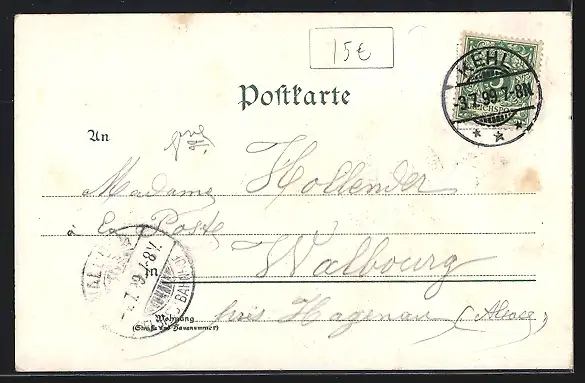 15€
Postkarte
KEHL
-3.7.99.7-8N.
5
REICHSPOST
An
Madame Hollender
à La Poste
in Walbourg
près Hagenau (Alsace)
7.99.7-8V.
BAHN
Wohnung
(Straße und Hausnummer)